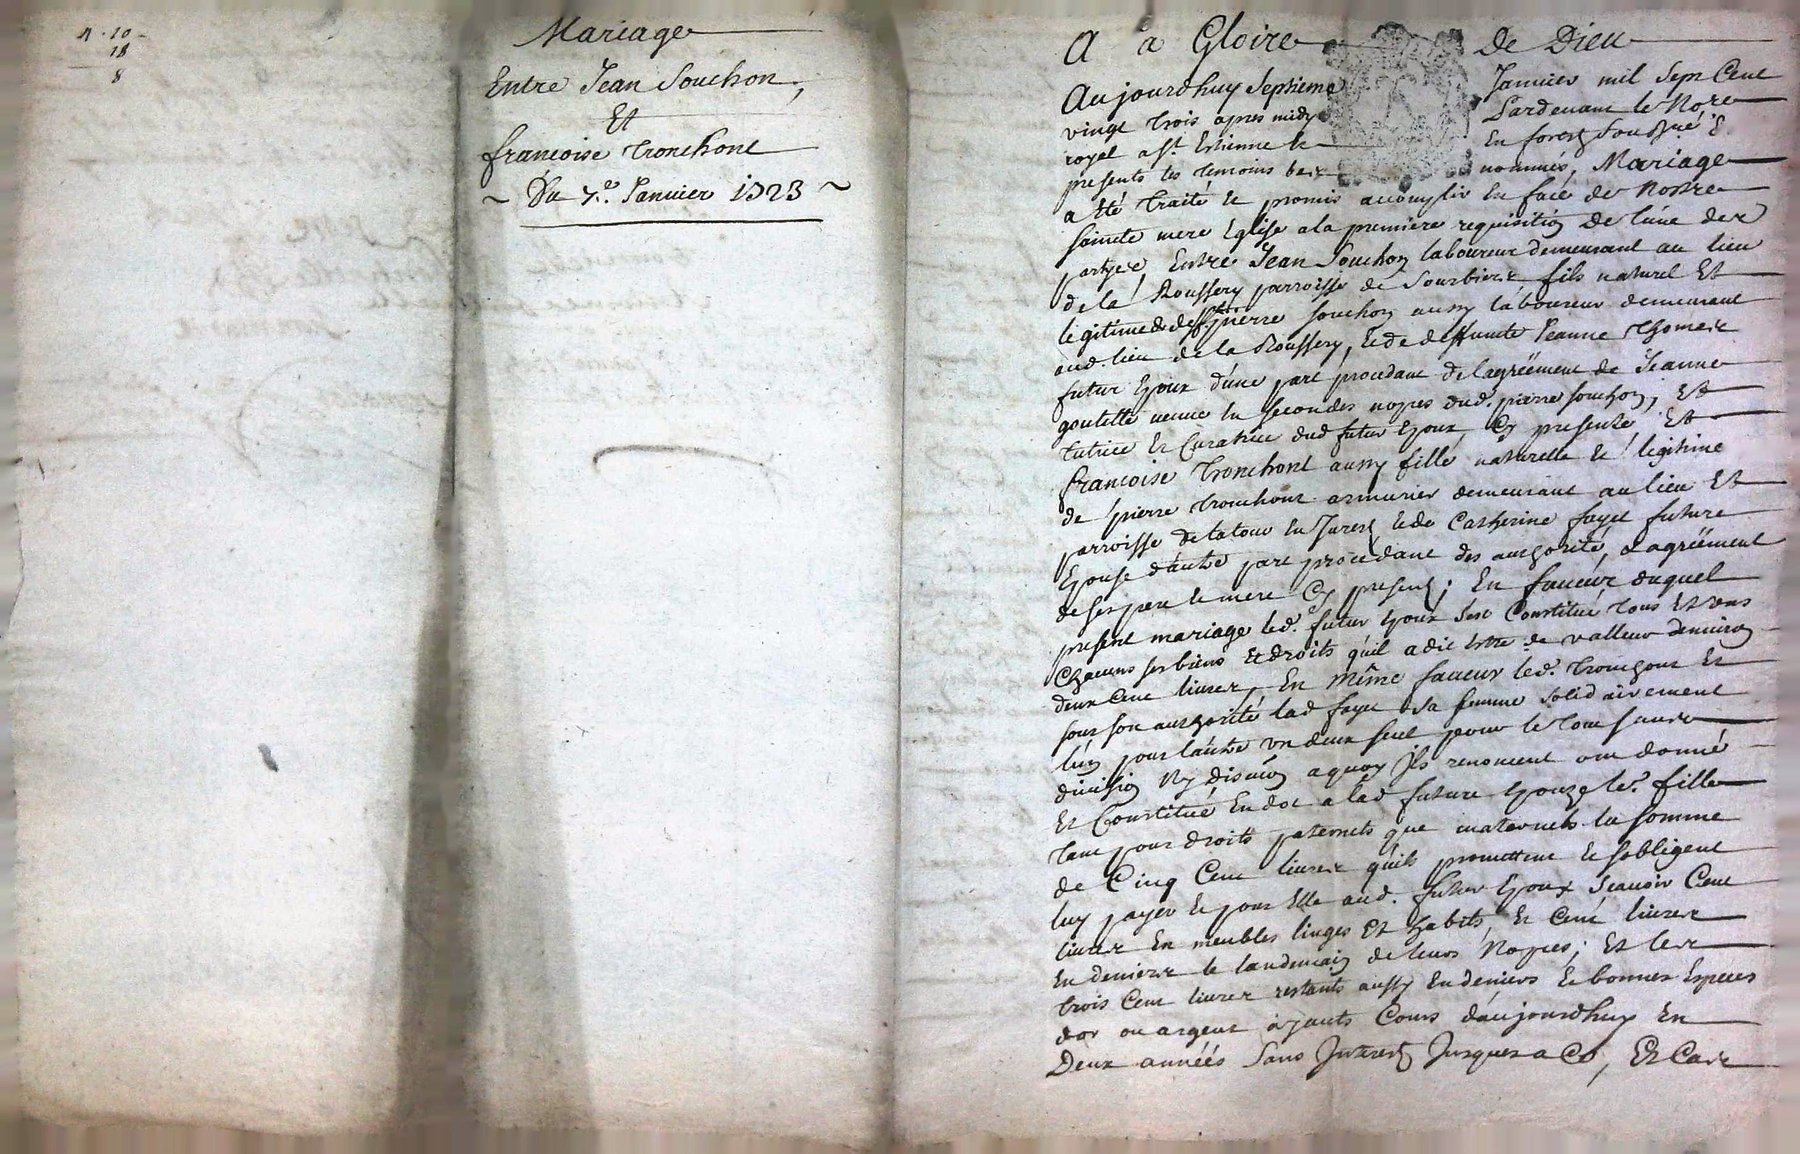 4 · 10 -
18
8
Mariage
Entre Jean Souchon,
Et
francoise Tronchont
~ Du 7.e Janvier 1723 ~
A a Gloire de Dieu
Aujourdhuy Septieme Janvier mil Sept Cent
vingt trois apres midy Pardevant le Nore
royal a St. Estienne En forest Soussigné &
presents les temoins bas nommés, Mariage
a été traité et promis accomplir En face de Nostre
Sainte mere Eglise a la premiere requisition de lune des
partyes, Entre Jean Souchon laboureur demeurant au lieu
de la Roussery parroisse de Sourbiers fils naturel Et
legitime de pierre Souchon aussy laboureur demeurant
aud. lieu de la Roussery, et de deffunte Jeanne Thomas
futur Epoux d'une part procedant de lagréement de Jeanne
goutelle veuve En secondes nopces dud. pierre Souchon, Et
tutrice Et Curatrice dud futur Epoux Cy presente, Et
francoise Tronchont aussy fille naturelle et legitime
de pierre Tronchont armurier demeurant au lieu Et
parroisse de latour En Jarest et de Catherine fayet future
Epouse d'autre part procedant des authorité, & agréement
de ses pere et mere Cy presents; En faveur duquel
present mariage led. futur Epoux s'est Constitué tous Et uns
Chacuns ses biens Et droits qu'il a dit estre de valleur denviron
deux Cent livres, En même faveur led. Tronchont Et
sous son authorité lad fayet sa femme solidairement
lun pour lautre un deux seul pour le tout sans
division Ny discution aquoy Ils renoncent ont donné
Et Constitué En dot a lad future Epouze leur fille
tant pour droits paternels que maternels la somme
de Cinq Cent livres quils promettent et sobligent
luy payer et pour Elle aud. futur Epoux Scavoir Cent
livres En meubles linges Et habits, Et Cent livres
En deniers le landemain de leurs Nopces; Et les
trois Cent livres restants aussy En deniers Et bonnes Especes
dor ou argent ayants Cours d'aujourdhuy En
Deux années Sans Interest Jusques a Ce, Et Car